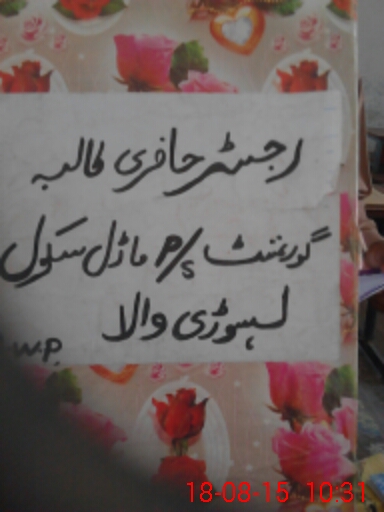 رجسٹر حاضری طالبہ
گورنمنٹ P/S ماڈل سکول
لسوڑی والا
W.P
18-08-15 10:31